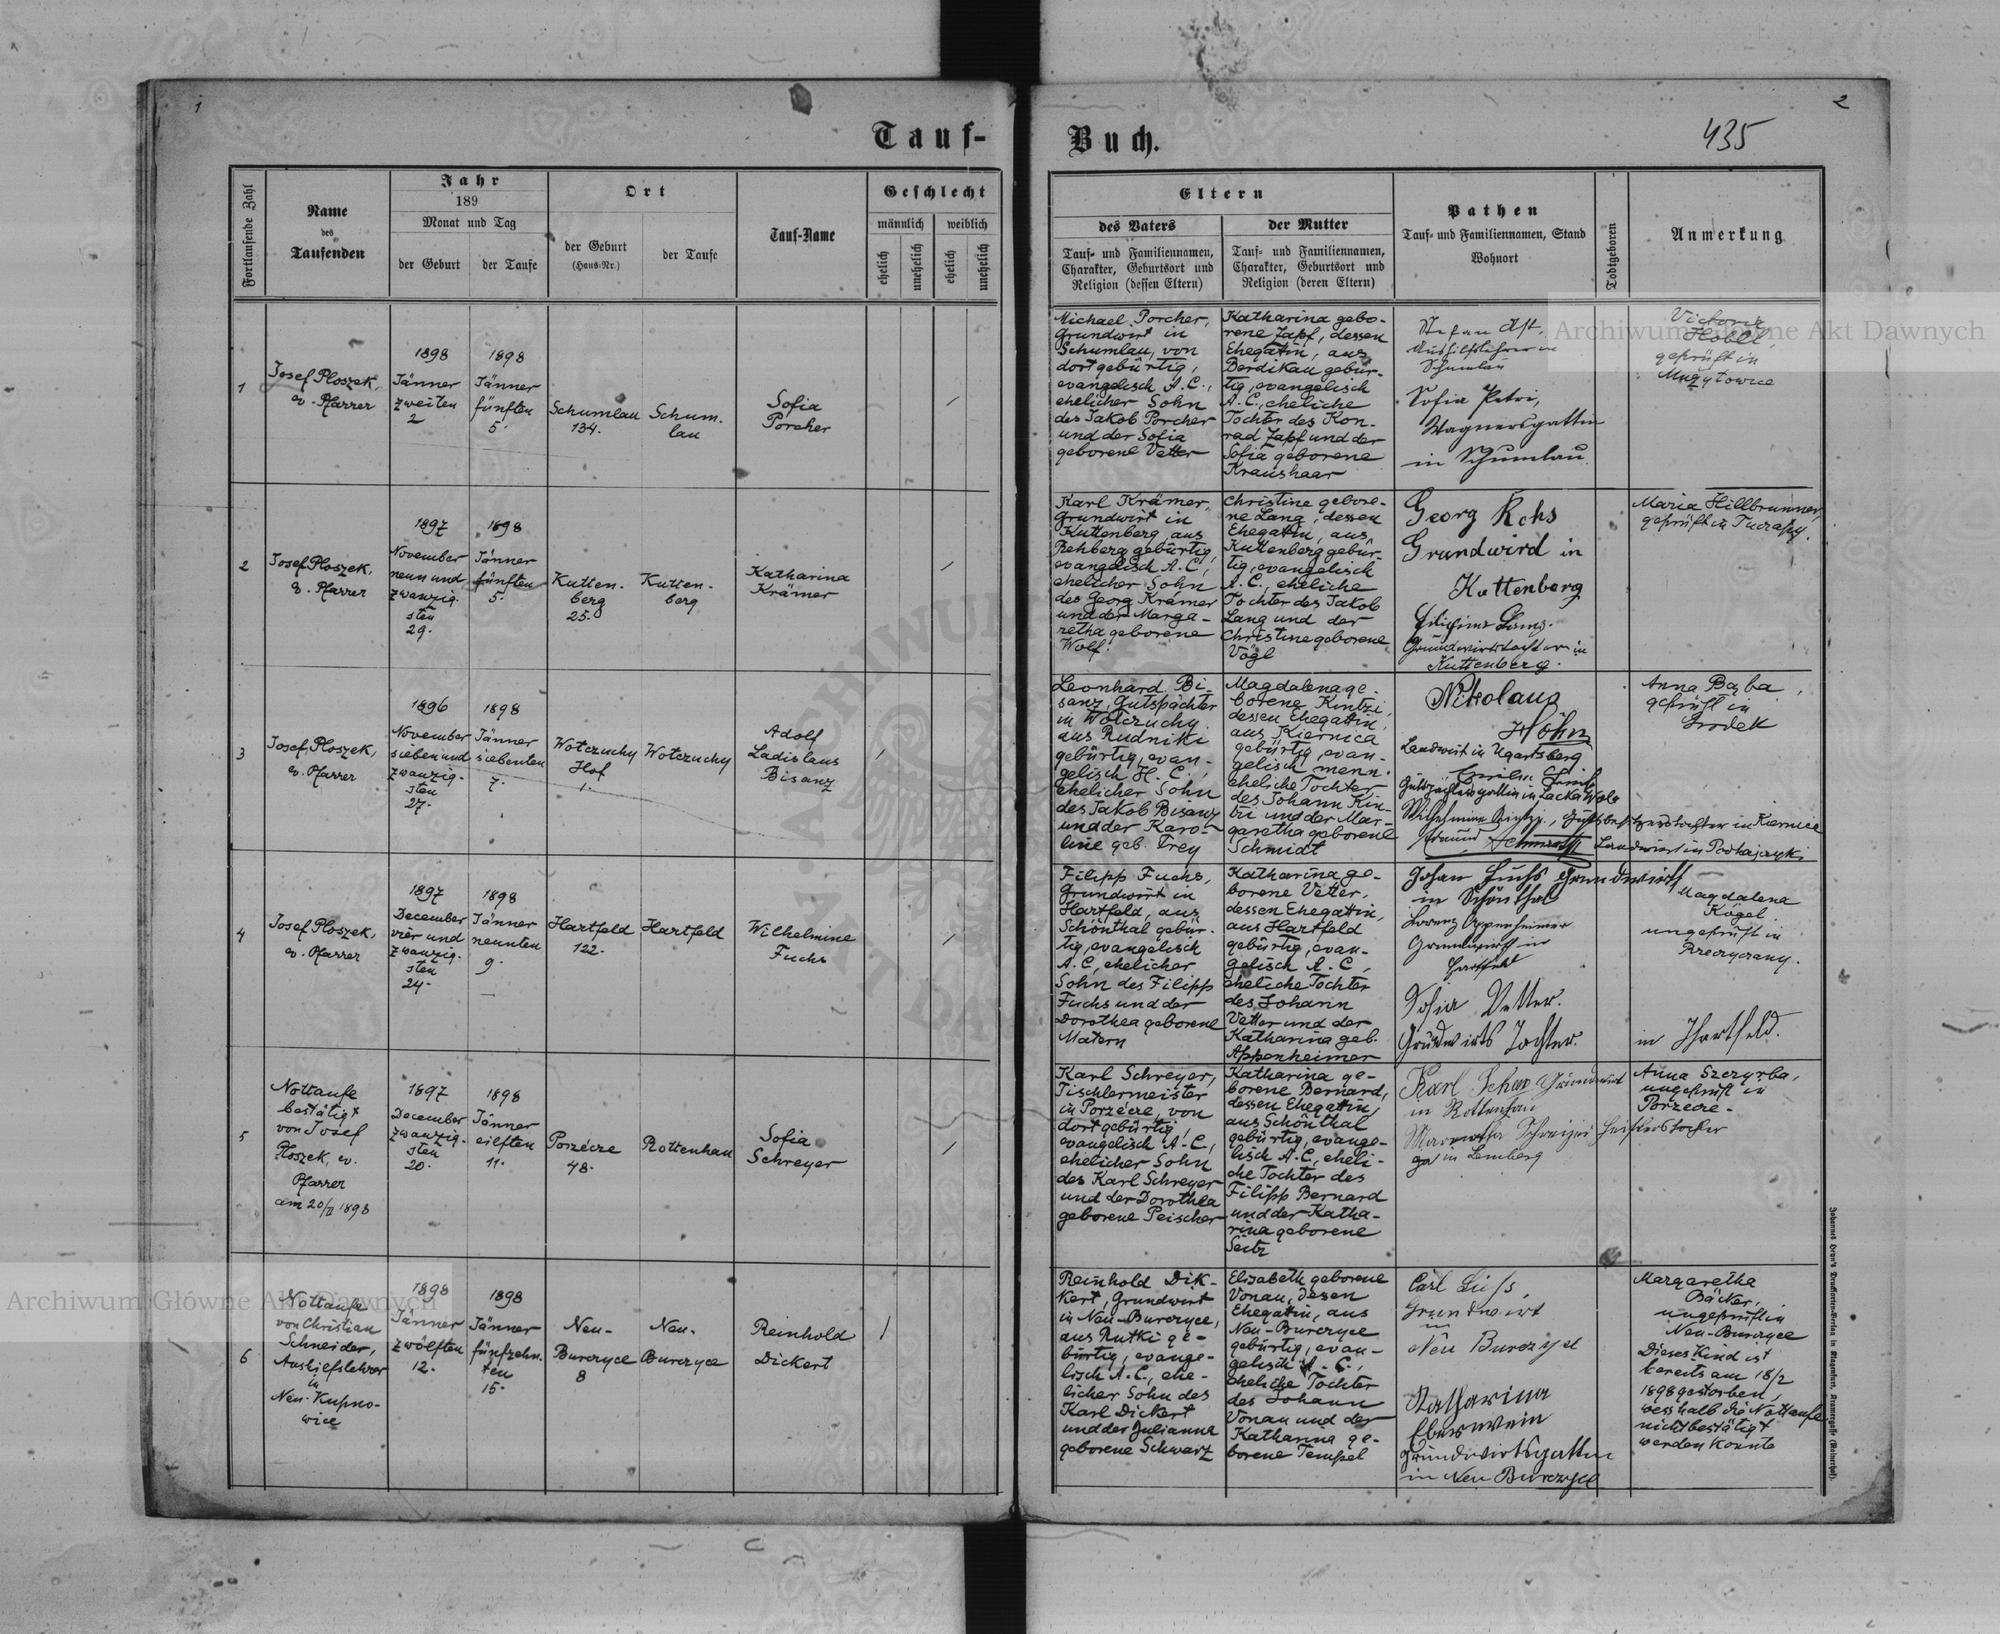 1
2
435
Tauf-
Buch.
Fortlaufende Zahl
Name
des
Taufenden
Jahr
189
Monat und Tag
der Geburt
der Taufe
Ort
der Geburt
(Haus-Nr.)
der Taufe
Tauf-Name
Geschlecht
männlich
weiblich
ehelich
unehelich
ehelich
unehelich
Eltern
des Vaters
Tauf- und Familiennamen,
Charakter, Geburtsort und
Religion (dessen Eltern)
der Mutter
Tauf- und Familiennamen,
Charakter, Geburtsort und
Religion (deren Eltern)
Pathen
Tauf- und Familiennamen, Stand
Wohnort
Todtgeboren
Anmerkung
1
Josef Ploszek,
ev. Pfarrer
1898
Jänner
zweiten
2
1898
Jänner
fünften
5.
Schumlau
134.
Schum-
lau
Sofia
Porcher
Michael Porcher,
Grundwirt in
Schumlau, von
dort gebürtig,
evangelisch A.C.,
ehelicher Sohn
des Jakob Porcher
und der Sofia
geborene Vetter
Katharina gebo-
rene Zapf, dessen
Ehegattin, aus
Berdikau gebür-
tig, evangelisch
A.C., eheliche
Tochter des Kon-
rad Zapf und der
Sofia geborene
Kraushaar
Stefan Ast,
Aushilfslehrer in
Schumlau
Sofia Petri,
Wagnersgattin
in Schumlau
geprüft in
Muzylowice
2
Josef Ploszek,
ev. Pfarrer
1897
November
neun und
zwanzig-
sten
29.
1898
Jänner
fünften
5.
Kutten-
berg
25.
Kutten-
berg
Katharina
Krämer
Karl Krämer,
Grundwirt in
Kuttenberg, aus
Rehberg gebürtig,
evangelisch A.C.,
ehelicher Sohn
des Georg Krämer
und der Marga-
retha geborene
Wolf.
Christine gebore-
ne Lang, dessen
Ehegattin, aus
Kuttenberg gebür-
tig, evangelisch
A.C., eheliche
Tochter des Jakob
Lang und der
Christine geborene
Vögl
Georg
Grundwird in
Kuttenberg
Lang.
Grundwirtstochter in
Kuttenberg.
Maria Hillbrunner,
geprüft in
3
Josef Ploszek,
ev. Pfarrer
1896
November
sieben und
zwanzig-
sten
27.
1898
Jänner
siebenten
7.
Wolczuchy
Hof
1.
Wolczuchy
Adolf
Ladislaus
Bisanz
Leonhard Bi-
sanz, Gutspächter
in Wolczuchy
aus Rudniki
gebürtig, evan-
gelisch H.C.,
ehelicher Sohn
des Jakob Bisanz
und der Karo-
line geb. Frey
Magdalena ge-
borene Kintzi,
dessen Ehegattin,
aus Kiernica
gebürtig, evan-
gelisch menn.
eheliche Tochter
des Johann Kin-
tzi und der Mar-
garetha geborene
Schmidt
Nikolaus
Höhn
Landwirt in Ugartsberg
Gutspächtersgattin in Lacka Wola
Wilhelmine
Gutsbesitzerstochter in Kiernica
Landwirt in Podhajczyki
Anna Bąba,
geprüft in
Grodek
4
Josef Ploszek,
ev. Pfarrer
1897
December
vier und
zwanzig-
sten
24.
1898
Jänner
neunten
9.
Hartfeld
122.
Hartfeld
Wilhelmine
Fuchs
Filipp Fuchs,
Grundwirt in
Hartfeld, aus
Schönthal gebür-
tig, evangelisch
A.C., ehelicher
Sohn des Filipp
Fuchs und der
Dorothea geborene
Matern
Katharina ge-
borene Vetter,
dessen Ehegattin,
aus Hartfeld
gebürtig, evan-
gelisch A.C.,
eheliche Tochter
des Johann
Vetter und der
Katharina geb.
Appenheimer
Johan Fuchs Grundwirt
in Schönthal
Lorenz Oppenheimer
Grundwirt in
Hartfeld
Sofia Vetter.
Grundwirts Tochter.
in Hartfeld.
Magdalena
Kögel
ungeprüft in
5
Nottaufe
bestätigt
von Josef
Ploszek, ev.
Pfarrer
am 20/II 1898
1897
December
zwanzig-
sten
20.
1898
Jänner
eilften
11.
Porzecze
48.
Rottenhan
Sofia
Schreyer
Karl Schreyer,
Tischlermeister
in Porzecze, von
dort gebürtig,
evangelisch A.C.,
ehelicher Sohn
des Karl Schreyer
und der Dorothea
geborene Peischer
Katharina ge-
borene Bernard,
dessen Ehegattin,
aus Schönthal
gebürtig, evange-
lisch A.C., eheli-
che Tochter des
Filipp Bernard
und der Katha-
rina geborene
Seitz
Karl Grundwirt
in Rottenhan
in Lemberg
Anna Szczyrba,
ungeprüft in
Porzecze.
6
Nottaufe
von Christian
Schneider,
Aushilfslehrer
in
Neu-Kupno-
wice
1898
Jänner
zwölften
12.
1898
Jänner
fünfzehn-
ten
15.
Neu-
Burczyce
8
Neu-
Burczyce
Reinhold
Dickert
Reinhold Dik-
kert, Grundwirt
in Neu-Burczyce,
aus Rutki ge-
bürtig, evange-
lisch A.C., ehe-
licher Sohn des
Karl Dickert
und der Julianna
geborene Schwarz
Elisabeth geborene
Vonau, dessen
Ehegattin, aus
Neu-Burczyce
gebürtig, evan-
gelisch A.C.,
eheliche Tochter
des Johann
Vonau und der
Katharina ge-
borene Tempel
Carl
Grundwirt
in
Neu Burczyce
Katharina
Eberwein
Grundwirtsgattin
in Neu Burczyce
Margaretha
Bäcker,
ungeprüft in
Neu-Burczyce
Dieses Kind ist
bereits am 18/2
1898 gestorben,
wesshalb die Nottaufe
nicht bestätigt
werden konnte
Archiwum Główne Akt Dawnych
Archiwum Główne Akt Dawnych